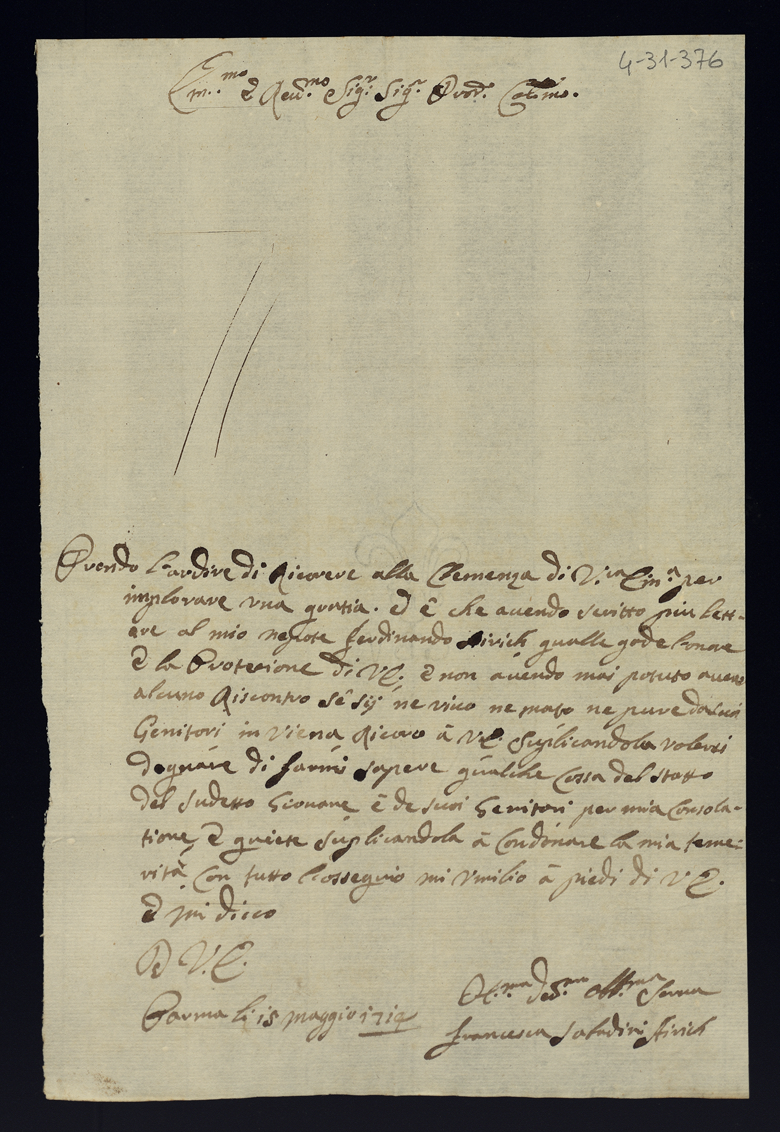 4-31-376
Em.mo e Reu.mo Sig.r Sig.r Pron.e Col.mo
Prendo l'ardire di Ricorere alla Clemenza di V.ra Em.a per
implorare vna gratia. Ed è che auendo scritto piu lett-
ere al mio nepote Ferdinando Airich qualle gode l'onore
e la Protetione di V.E. e non auendo mai potuto auere
alcuno Riscontro sè sij ne viuo ne morto ne pure da suoi
Genitori in Viena Ricoro à V.E. suplicandola volersi
degnare di farmi sapere qualche Cossa del statto
del sudetto Giouane è de suoi Genitori per mia Consola-
tione, e quiete suplicandola à Condonare la mia teme-
rità, Con tutto l'ossequio mi vmilio à piedi di V.E.
e mi dico
D V.E.
Parma li 15 maggio 1714
Vm.ma De.ma Obb.ma Serua
Francesca Saladini Airich